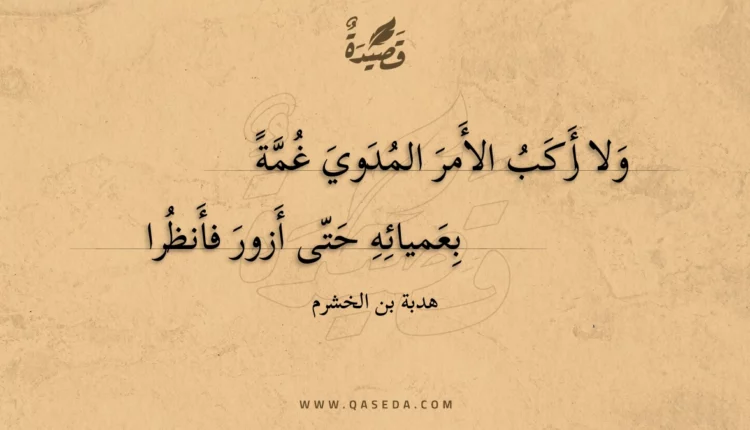 قَصِيْدَةٌ
وَلا أَركَبُ الأَمرَ المُدَوِيَ غُمَّةً
بِعَميائِهِ حَتّى أَزورَ فأَنظُرا
هدبة بن الخشرم
WWW.QASEDA.COM